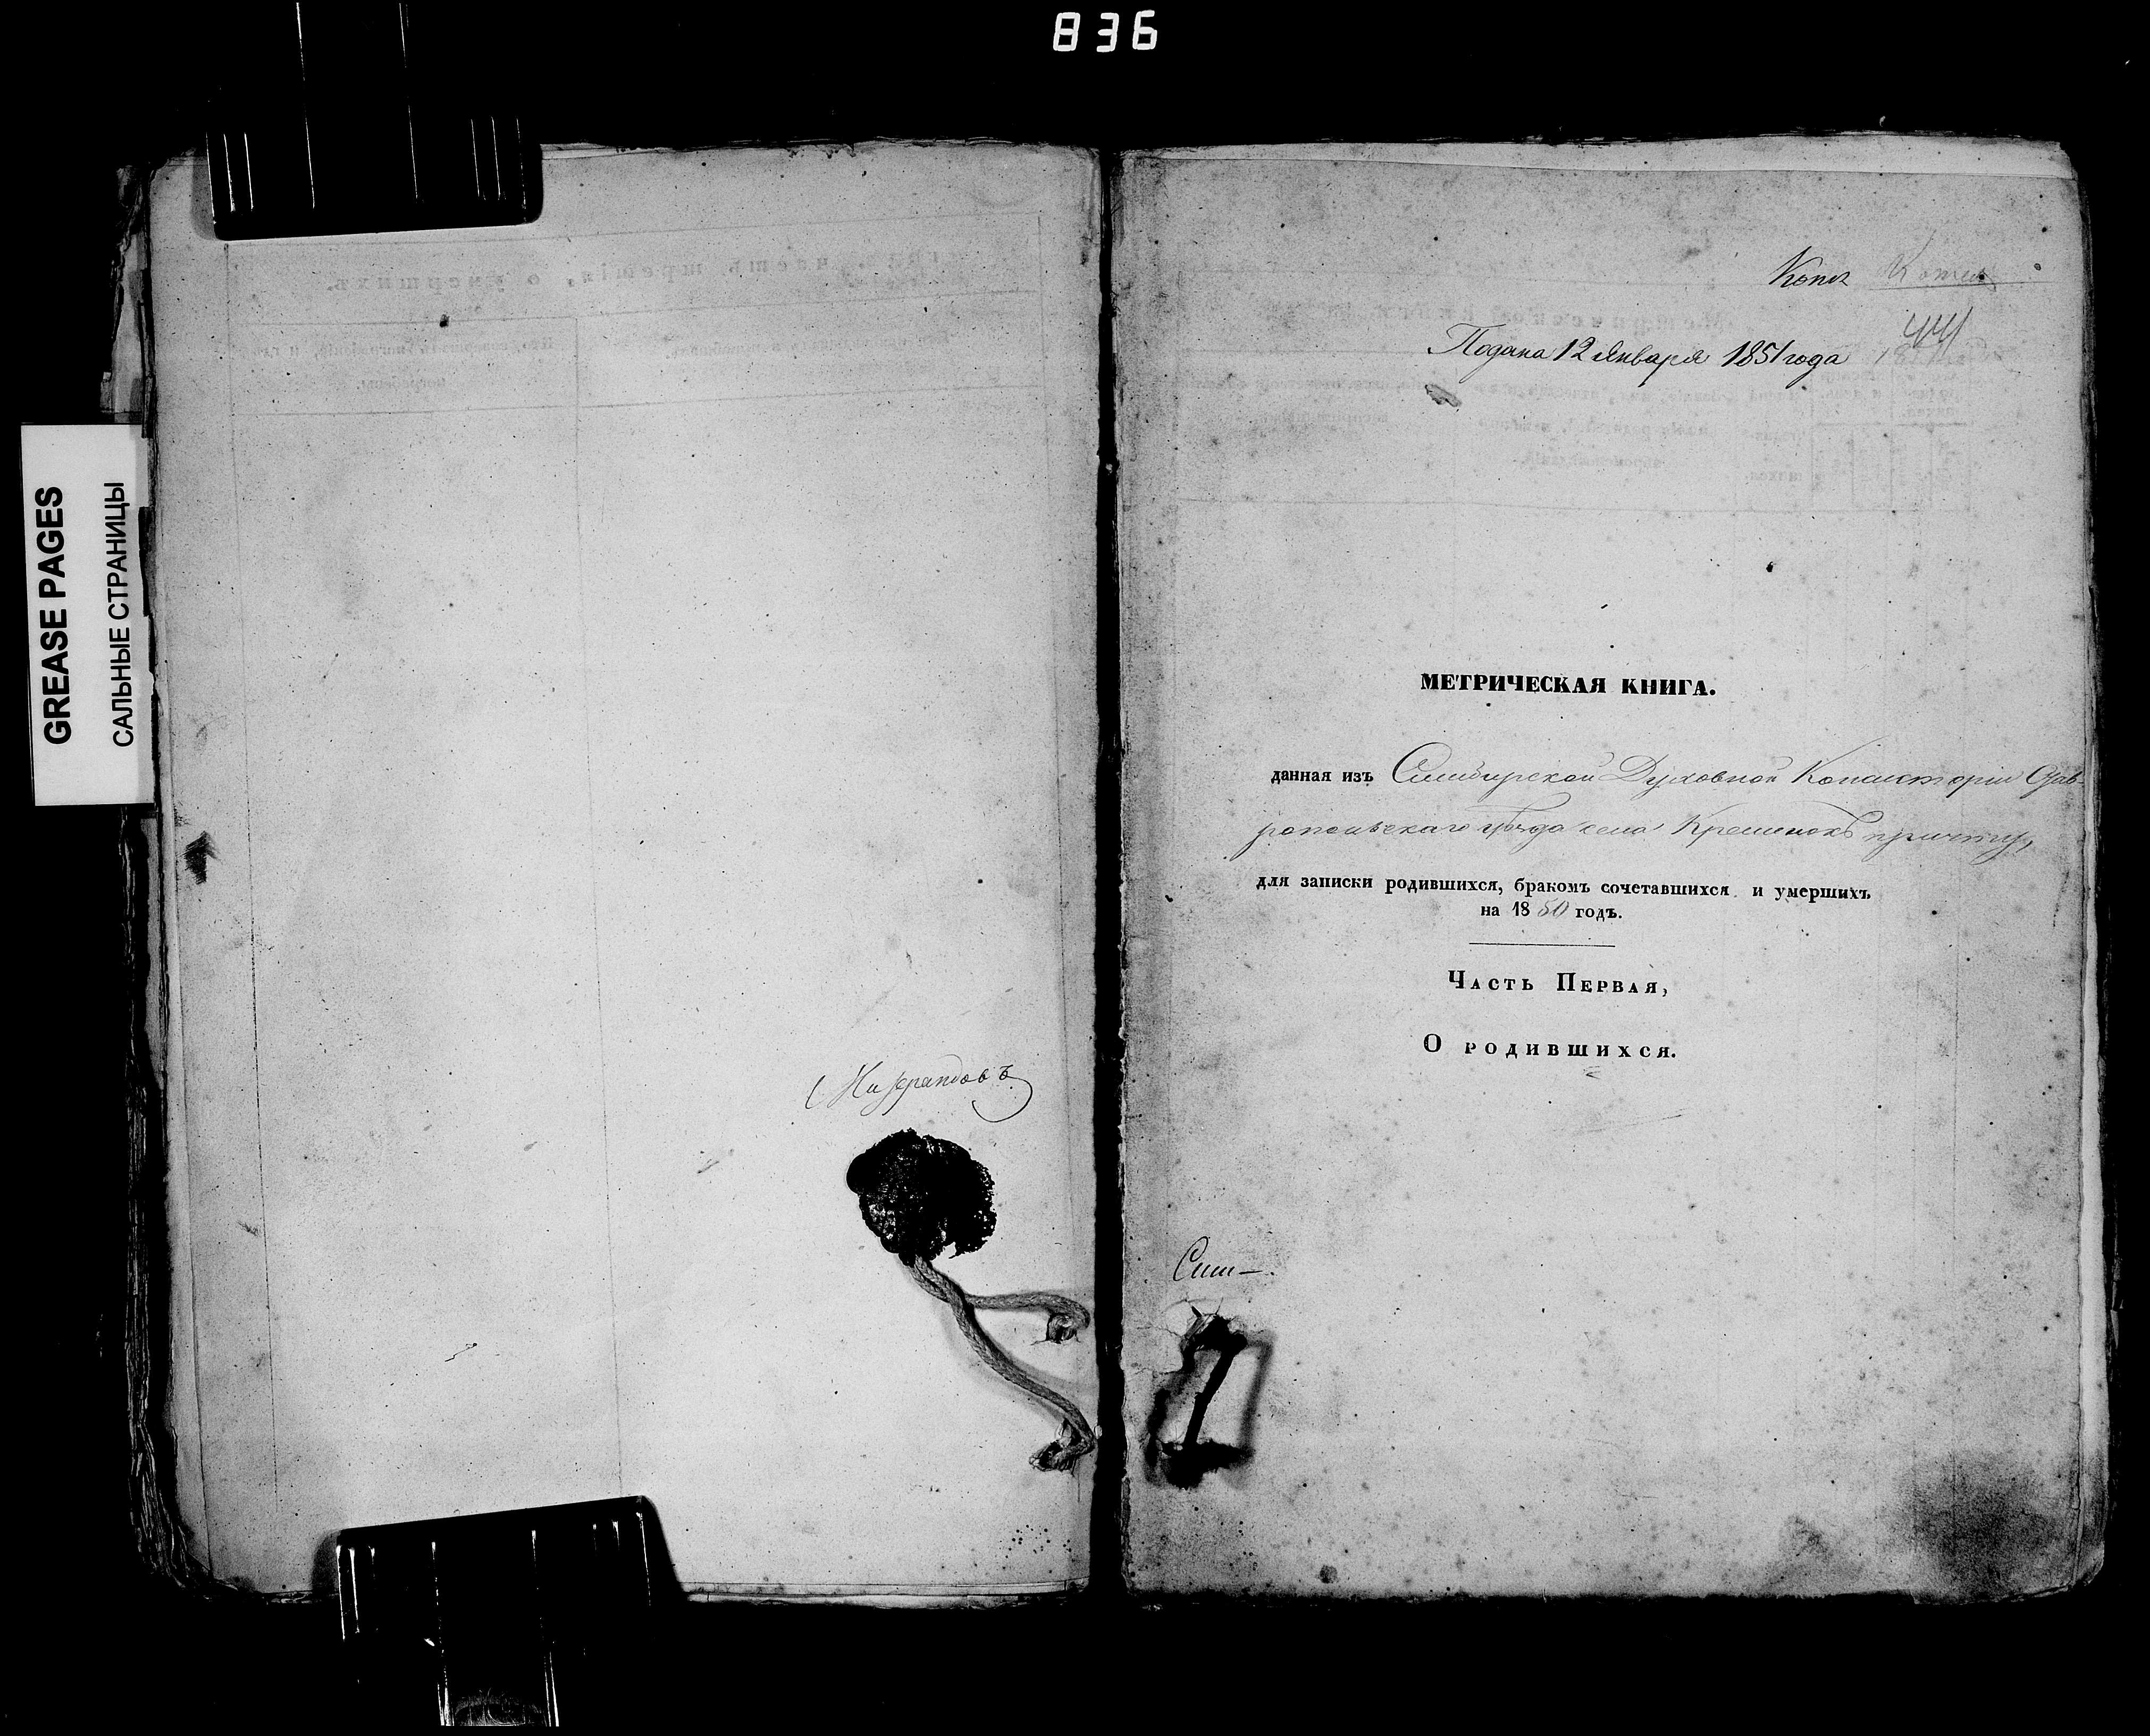 836
GREASE PAGES
САЛЬНЫЕ СТРАНИЦЫ
Копія
44
Подана 12 Января 1851 года
МЕТРИЧЕСКАЯ КНИГА.
данная изъ Симбирской Духовной Консисторіи Став-
ропольскаго уѣзда села Кременокъ причту,
для записки родившихся, бракомъ сочетавшихся и умершихъ
на 1850 годъ.
Часть Первая,
О родившихся.